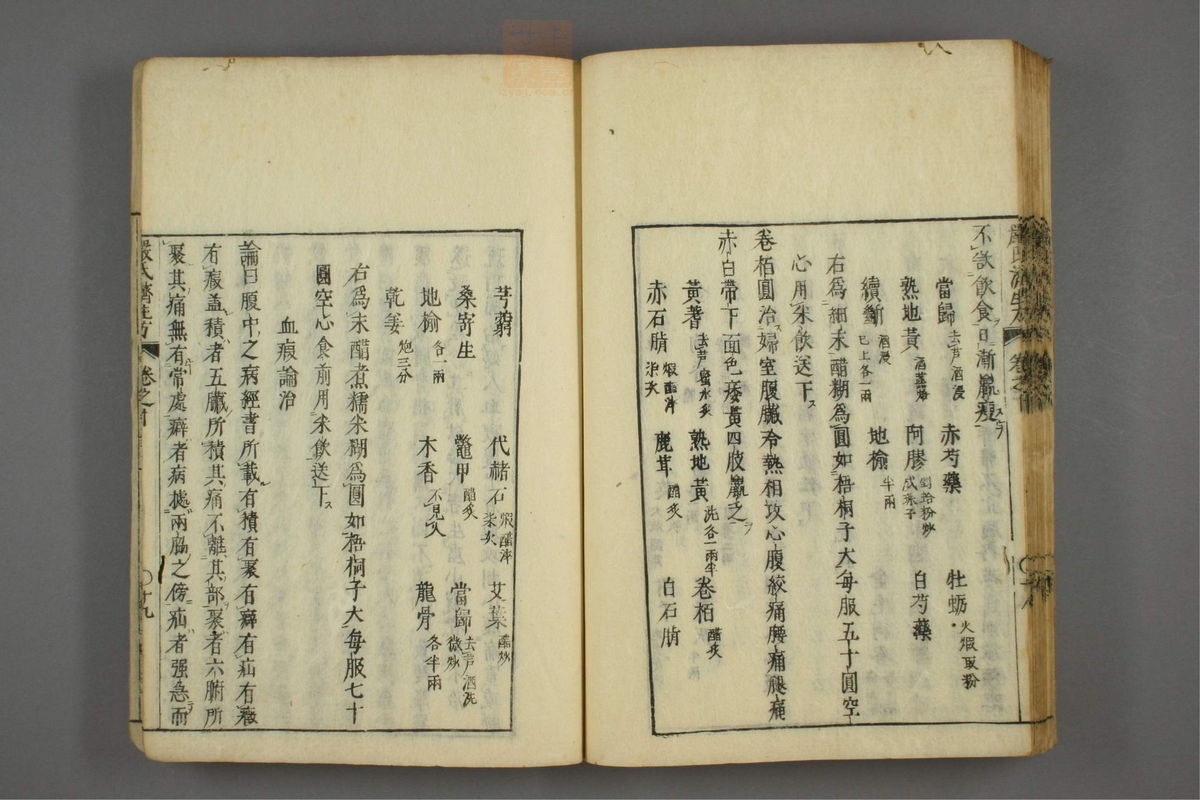 嚴氏濟生方 卷之
不欲飲食日漸羸瘦
當歸 去芦酒浸 赤芍藥 牡蠣 火煆取粉
熟地黃 酒蒸焙 阿膠 剉蛤粉炒成珠子 白芍藥
續斷 酒浸已上各一兩 地榆 半兩
右爲細末醋糊爲圓如梧桐子大每服五十圓空
心用米飲送下
卷栢圓治婦室腹臟冷熱相攻心腹絞痛腰痛腿痛
赤白帶下面色痿黃四肢羸乏
黃蓍 去芦蜜水炙 熟地黃 洗各一兩半 卷栢 醋炙
赤石脂 煆醋淬柒次 鹿茸 醋炙 白石脂
芎藭 代赭石 煆醋淬柒次 艾葉 醋炒
桑寄生 鼈甲 醋炙 當歸 去芦酒洗微炒
地榆 各一兩 木香 不見火 龍骨 各半兩
乾姜 炮三分
右爲末醋煮糯米糊爲圓如梧桐子大每服七十
圓空心食前用米飲送下
血瘕論治
論曰腹中之病經書所載有積有聚有癖有疝有
有瘕蓋積者五臟所積其痛不離其部聚者六腑所
聚其痛無有常處癖者病據兩脇之傍疝者强急而
嚴氏濟生方 卷之 十九